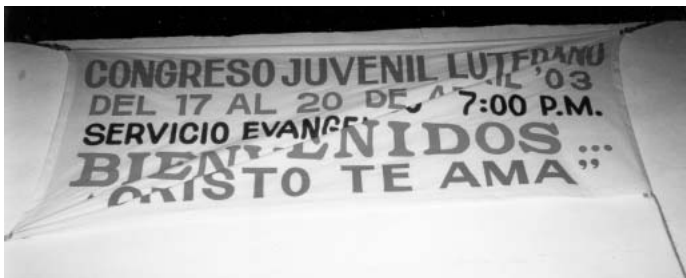 CONGRESO JUVENIL LUTERANO
DEL 17 AL 20 DE ABRIL '03
SERVICIO 7:00 P.M.
BIENVENIDOS...
"CRISTO TE AMA"